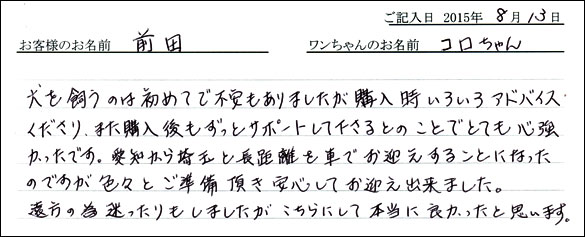 ご記入日 2015年 8月13日
お客様のお名前 前田 ワンちゃんのお名前 コロちゃん
犬を飼うのは初めてで不安もありましたが購入時いろいろアドバイス
くださり、また購入後もずっとサポートして下さるとのことでとても心強
かったです。愛知から埼玉と長距離を車でお迎えすることになった
のですが色々とご準備頂き安心してお迎え出来ました。
遠方の為迷ったりもしましたがこちらにして本当に良かったと思います。